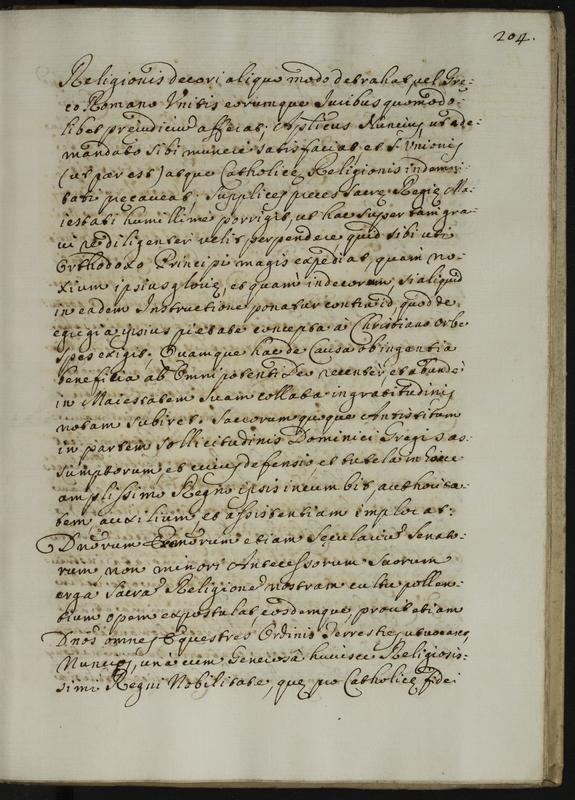 204.
Religionis decori aliquo modo detrahat, vel Gre-
co Romano Unitis eorumque Juribus quomodo-
libet preiudiciũ afferat, Apl̃icus Nuncius, ut de-
mandato sibi muneri satisfaciat et S. Unionis
(ut par est) atque Catholicę Religionis indemni-
tati precaveat; supplices preces Sacrę Regię Ma-
iestati humillimè porrigit, ut hac super tàm gra-
vi re diligenter velit perpendere quid sibi uti
Orthodoxo Principi magis expediat, quàm no-
xium ipsius glorię, et quam indecorum, si aliquid
in eadem Instructione ponatur contra id, quod de
egregia ipsius pietate concepta à Christiano orbe
spes exigit; Quamque hac de Causa ob ingentia
beneficia ab Omnipotenti Deo recenter, et abundè
in Maiestatem suam collata ingratitudinis
notam subiret. Sacrorum quoque Antistitum
in partem sollicitudinis Dominici Gregis as-
sumptorum, et cuius defensio et tutela in hoc
amplissimo Regno ipsis incumbit, authorita-
tem auxilium, et assistentiam implorat:
Dñorum etiam Sęcularium Senato-
rum non minori Antecessorum Suorum
erga Sacrã Religionẽ nostram cultu pollen-
tium opem expostulat, eosdemque, prout etiam
Dños omnes Equestris Ordinis Terrestres, ut vocant,
Nuncios, unà cum Generosa huiusce Religiosis-
simi Regni Nobilitate, quę pro Catholicę fidei